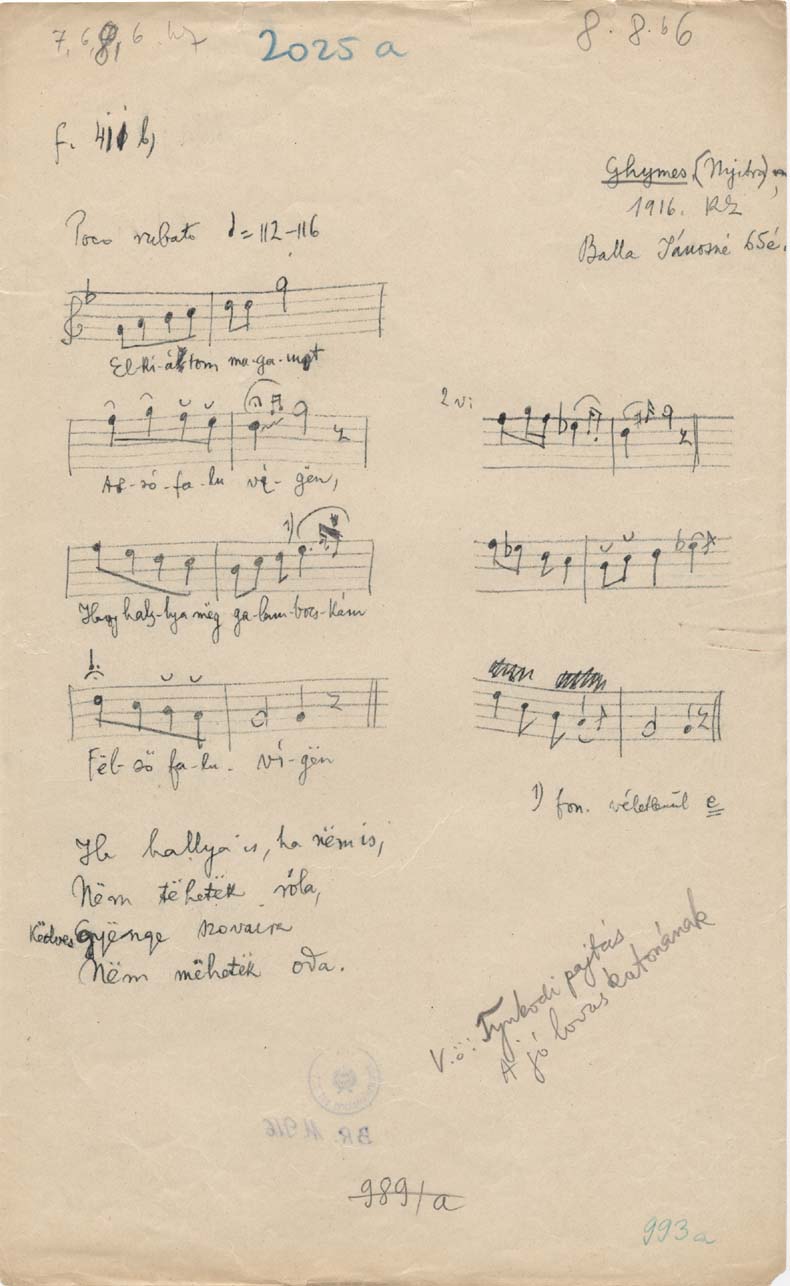 7, 6, 8, 6
2025 a
8. 8. 6 6
Ghymes (Nyitra)
1916.
Balla Jánosné 65é.
Poco rubato = 112–116
El-ki-ál-tom ma-ga-mat
Al-só-fa-lu vé-gën,
2 v:
1)
Hogy hally-lya mëg ga-lam-bocs-kám
Fël-ső fa-lu- vi-gën
1) fon. véletlenül e
Ha hallya is, ha nëm is,
Nëm tëhetëk róla,
Kedves Gyënge szovaira
Nëm mëhetëk oda.
V.ö: pajtás
A jó lovas katonának
BR. 11 916
989/a
993 a